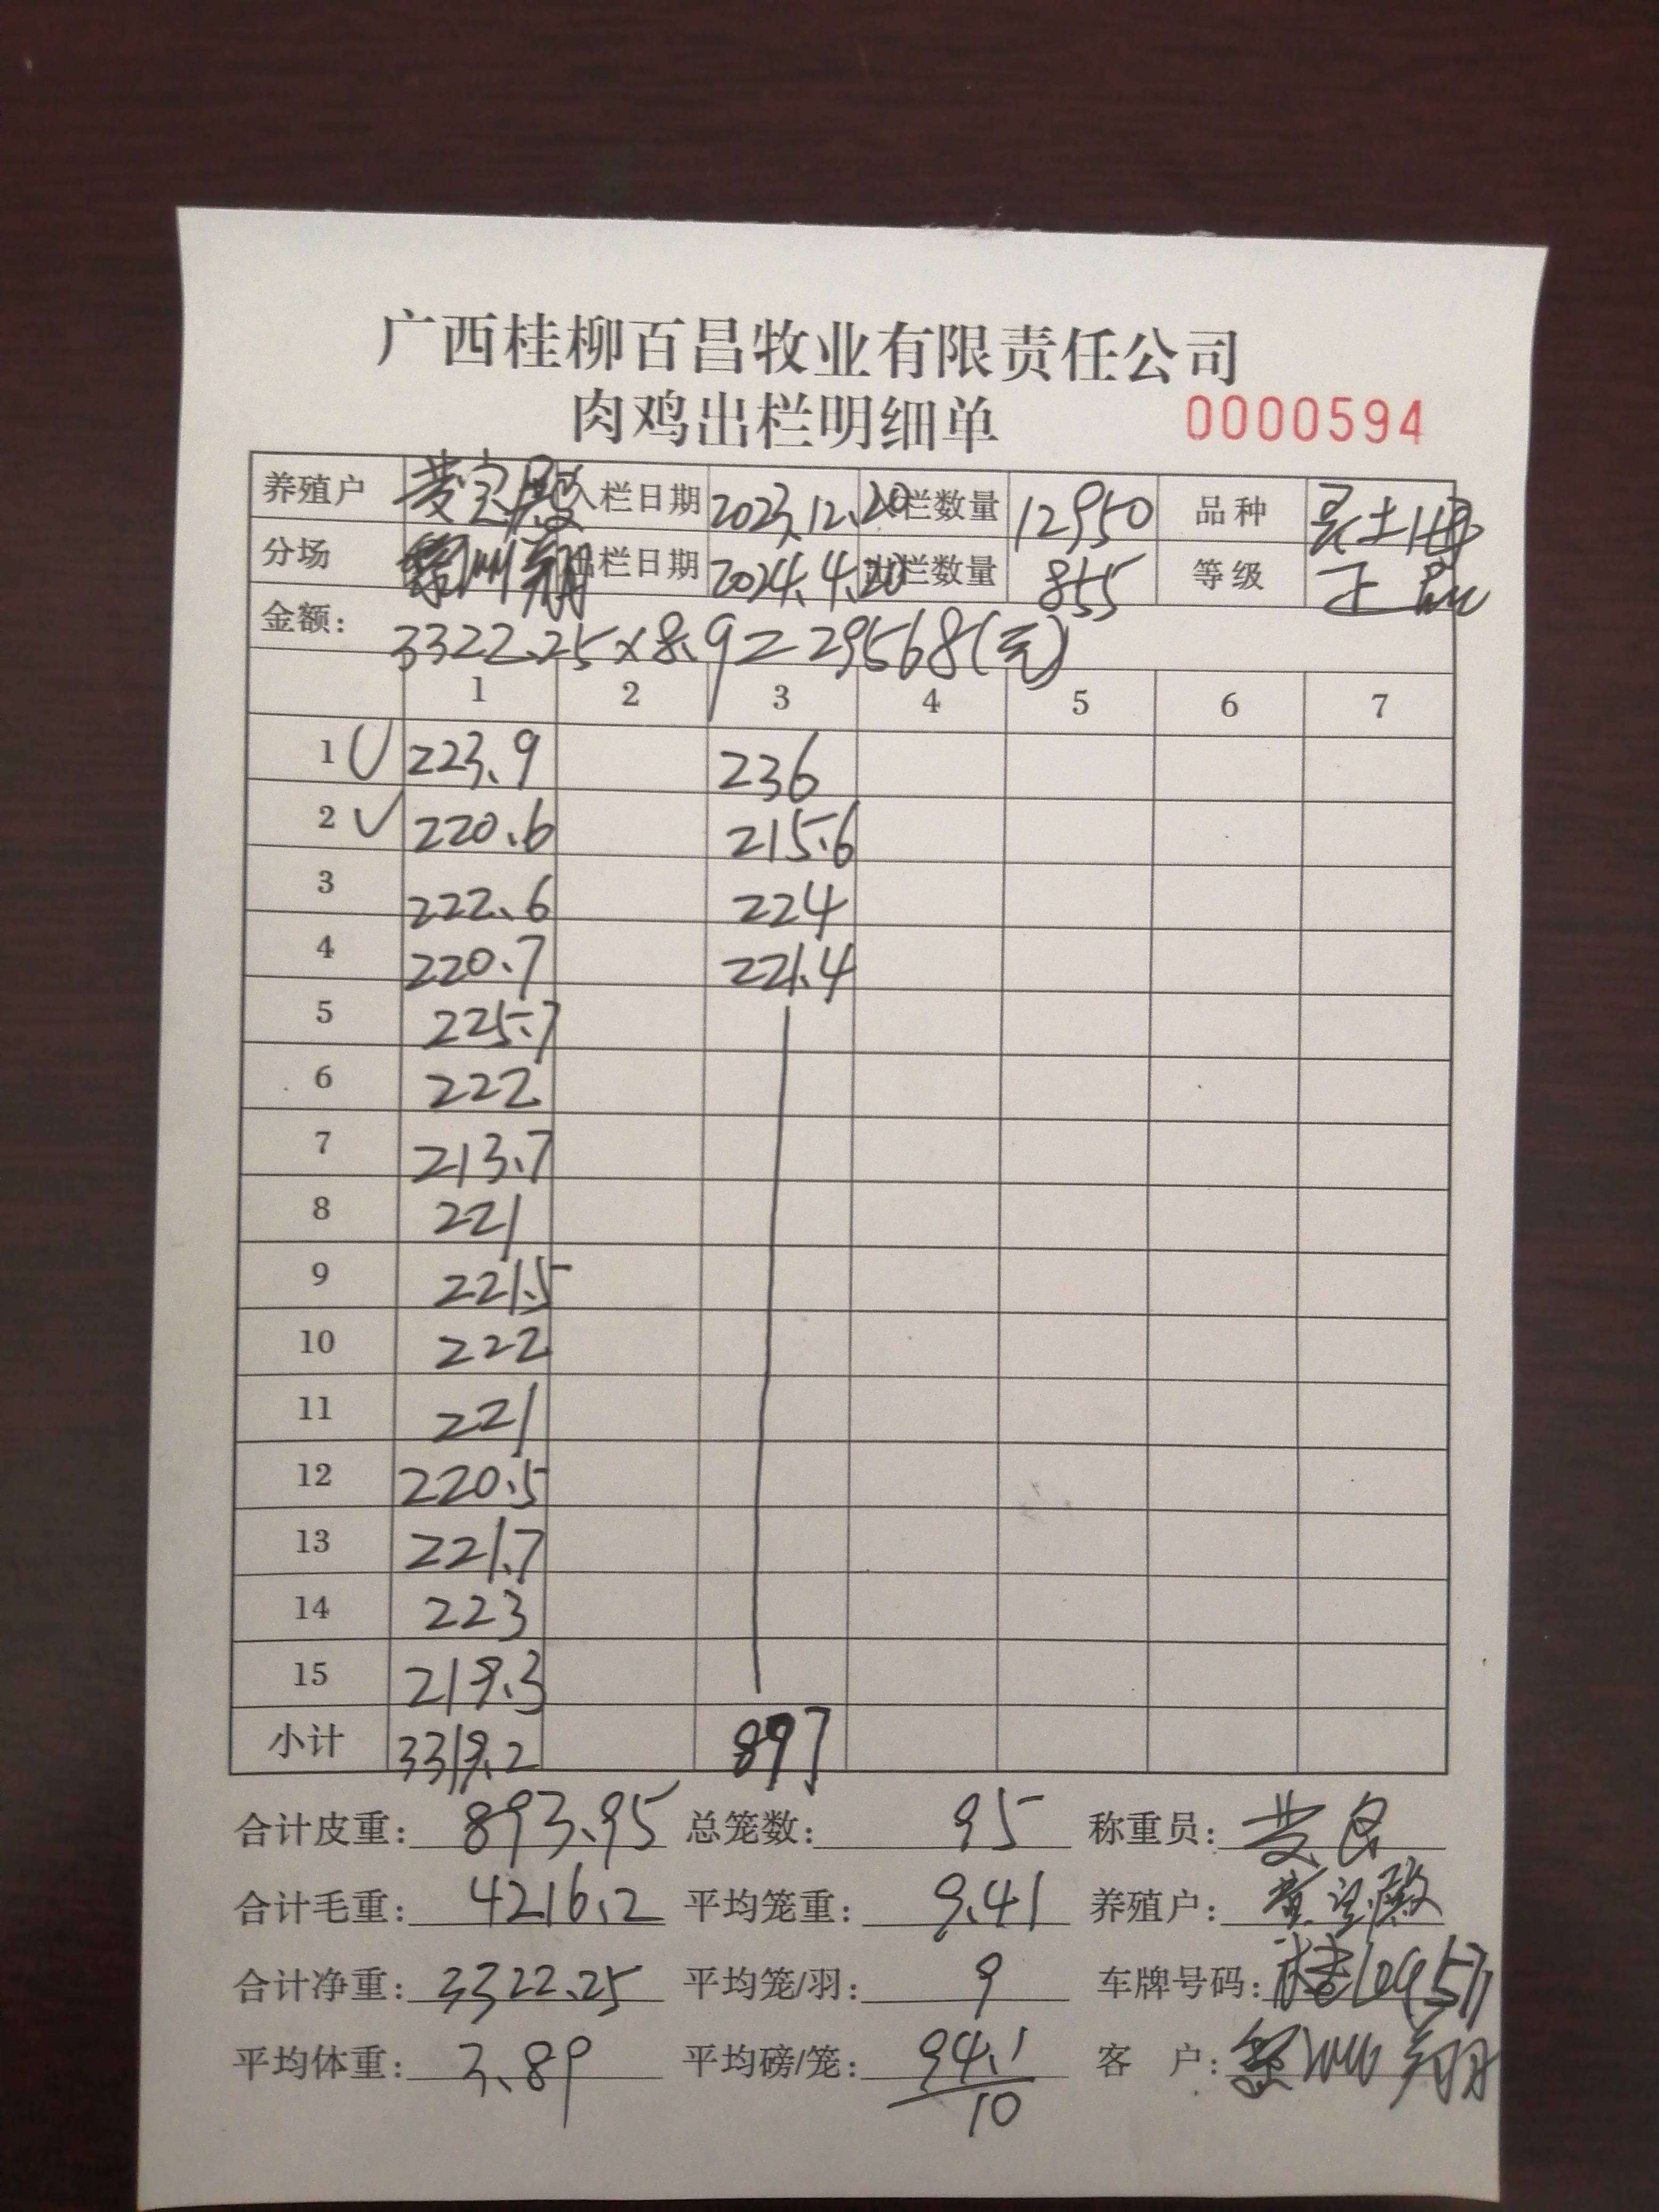 广西桂柳百昌牧业有限责任公司
肉鸡出栏明细单 0000594
养殖户 黄宝殿 入栏日期 2023.12.20 入栏数量 12950 品种 土
分场 翔 出栏日期 2024.4.20 出栏数量 855 等级 正
金额: 3322.25×8.9=29568(元)
1 2 3 4 5 6 7
1 223.9 236
2 220.6 215.6
3 222.6 224
4 220.7 221.4
5 225.7
6 222
7 213.7
8 221
9 221.5
10 222
11 221
12 220.5
13 221.7
14 223
15 219.3
小计 3319.2 897
合计皮重: 893.95 总笼数: 95 称重员: 黄
合计毛重: 4216.2 平均笼重: 9.41 养殖户: 黄宝殿
合计净重: 3322.25 平均笼/羽: 9 车牌号码: 桂
平均体重: 3.89 平均磅/笼: 94.1/10 客 户: 翔